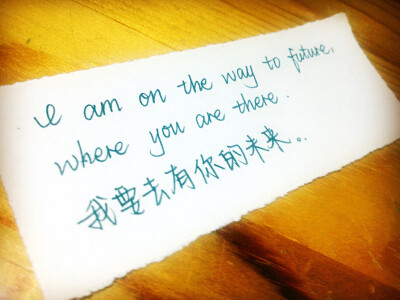 I am on the way to future,
where you are there.
我要去有你的未来。.